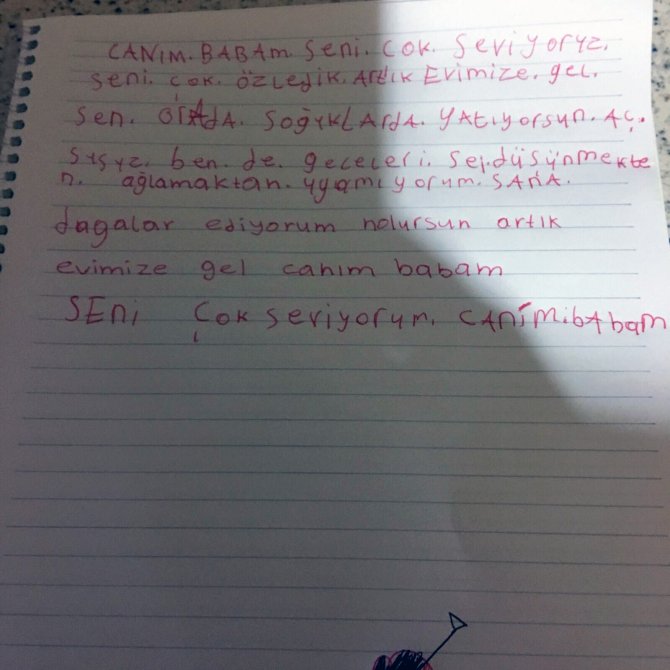 CANIM. BABAM. Seni. ÇOK. Seviyoryz.
Seni. çok. özledik. Artık Evimize. gel.
Sen. ORADA. SoğykLArdA. YAtıyorsun. Aç.
Sysyz. ben. de. geceleri. Sei.düşünmekte
n. ağlamaktan. yyamıyorum. SANA.
dagalar ediyorum nolursun artık
evimize gel canım babam
SENi ÇOK Seviyorum. CANIM.bAbam